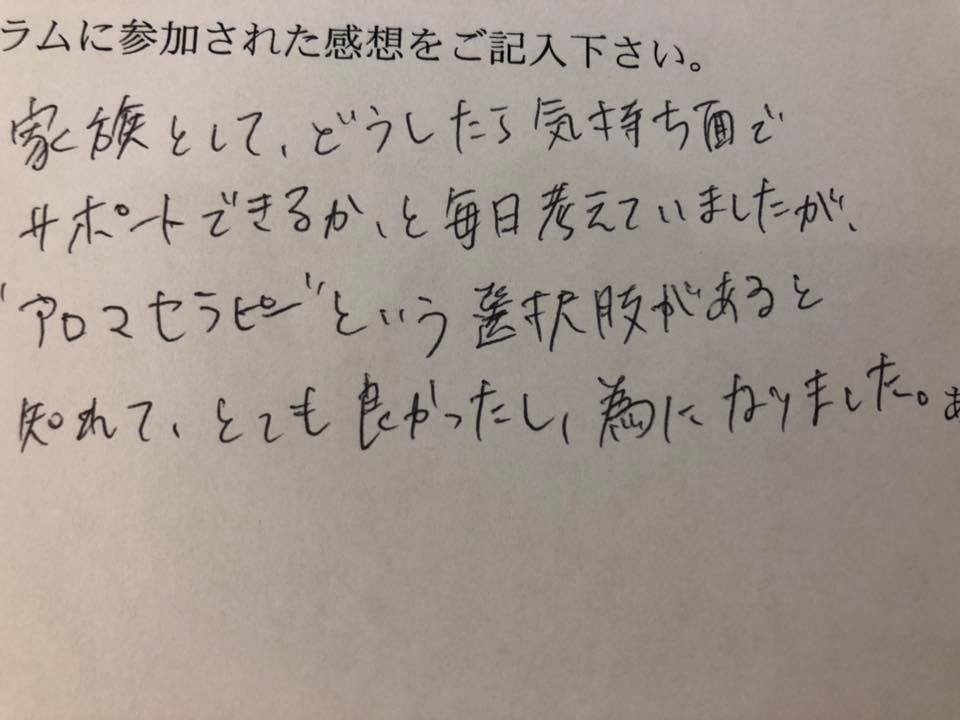 ラムに参加された感想をご記入下さい。
家族として、どうしたら気持ち面で
サポートできるか、と毎日考えていましたが、
"アロマセラピー"という選択肢があると
知れて、とても良かったし、為になりました。あ